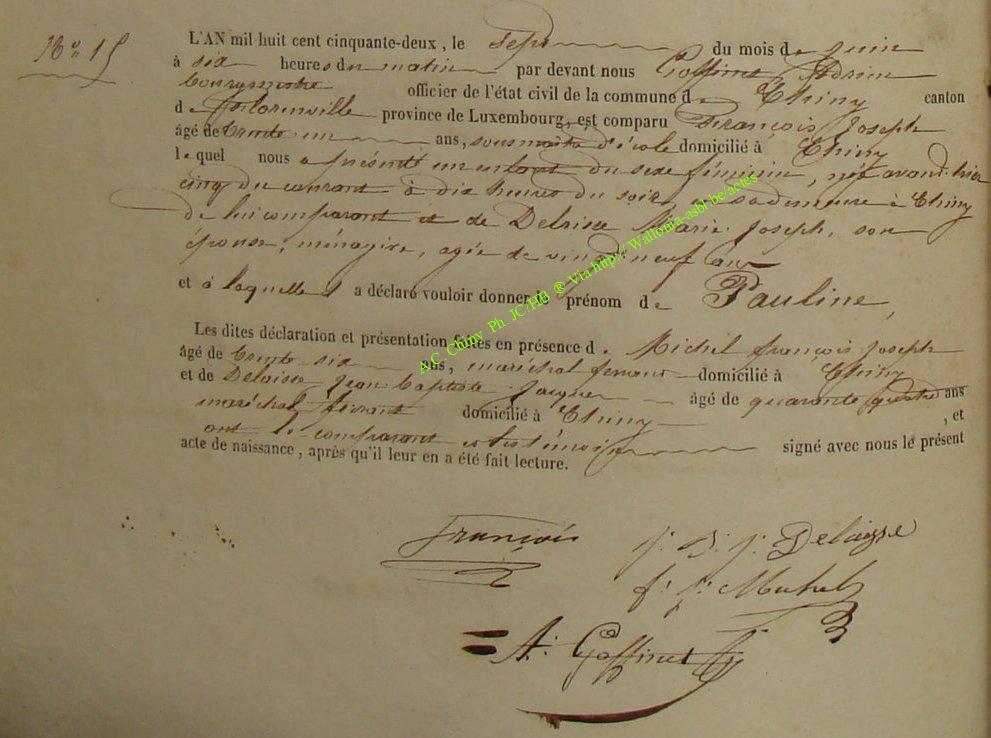 N° 15
L'AN mil huit cent cinquante-deux, le Sept du mois de Juin
à six heures du matin par devant nous Goffinet Adrien
bourgmestre officier de l'état civil de la commune de Chiny canton
de florenville province de Luxembourg, est comparu François Joseph
âgé de trente un ans, sous maître d'école domicilié à Chiny
lequel nous a présenté un enfant du sexe féminin, née avant-hier
cinq du courant à dix heures du soir, en sa demeure à Chiny
de lui comparant et de Delaisse Marie Joseph, son
épouse, ménagère, agée de vingt neuf ans
et à laquelle il a déclaré vouloir donner le prénom de Pauline,
Les dites déclaration et présentation faites en présence de Michel françois Joseph
âgé de trente six ans, maréchal ferrant domicilié à Chiny
et de Delaisse Jean baptiste Jacques âgé de quarante quatre ans
maréchal ferrant domicilié à Chiny , et
ont le comparant et les témoins signé avec nous le présent
acte de naissance, après qu'il leur en a été fait lecture.
François J: B: J: Delaisse
f: J: Michel
A: Goffinet
A.C. Chiny Ph. JC/HB ® Via http://Wallonia-asbl-be/actes